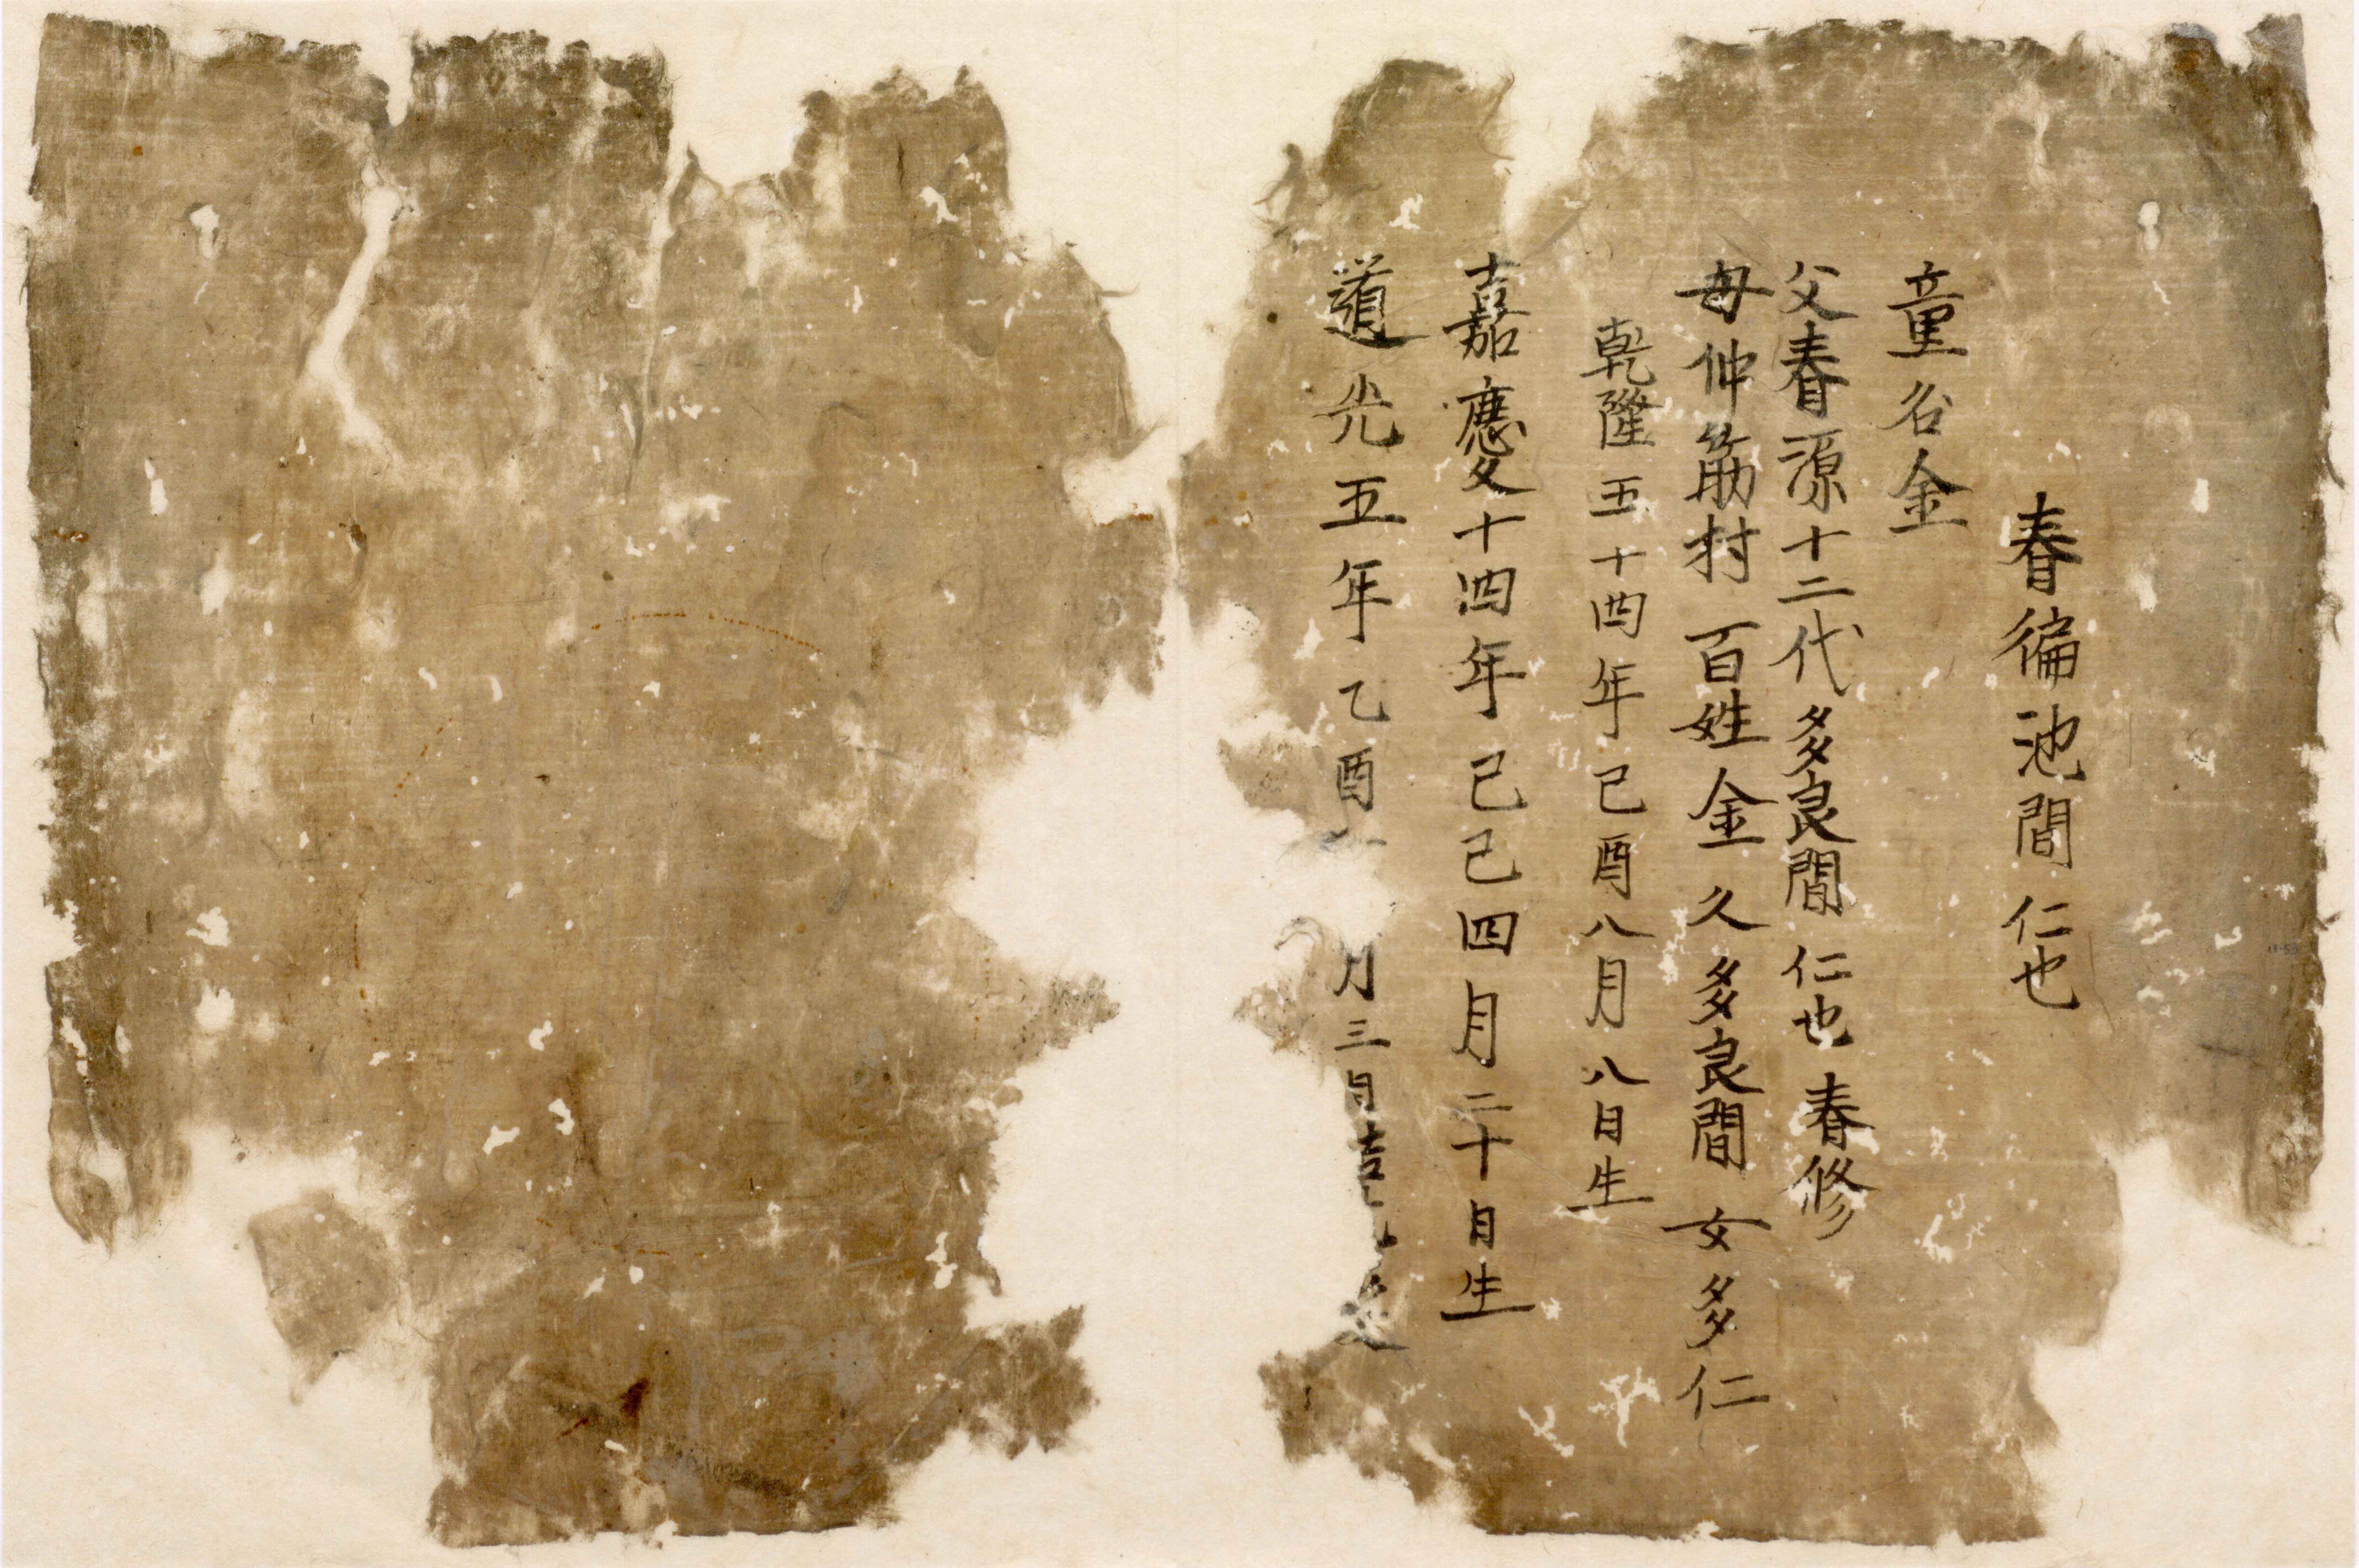 春徧池間仁也
童名金
父春源十二代多良間仁也春修
母仲筋村百姓金久多良間女多仁
乾隆五十四年己酉八月八日生
嘉慶十四年己巳四月二十日生
道光五年乙酉 月三日